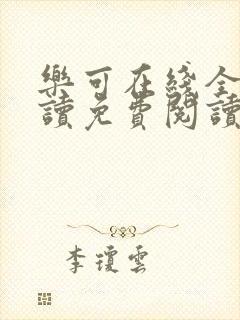 樂可在綫全
讀免費閱讀
李瓊雲